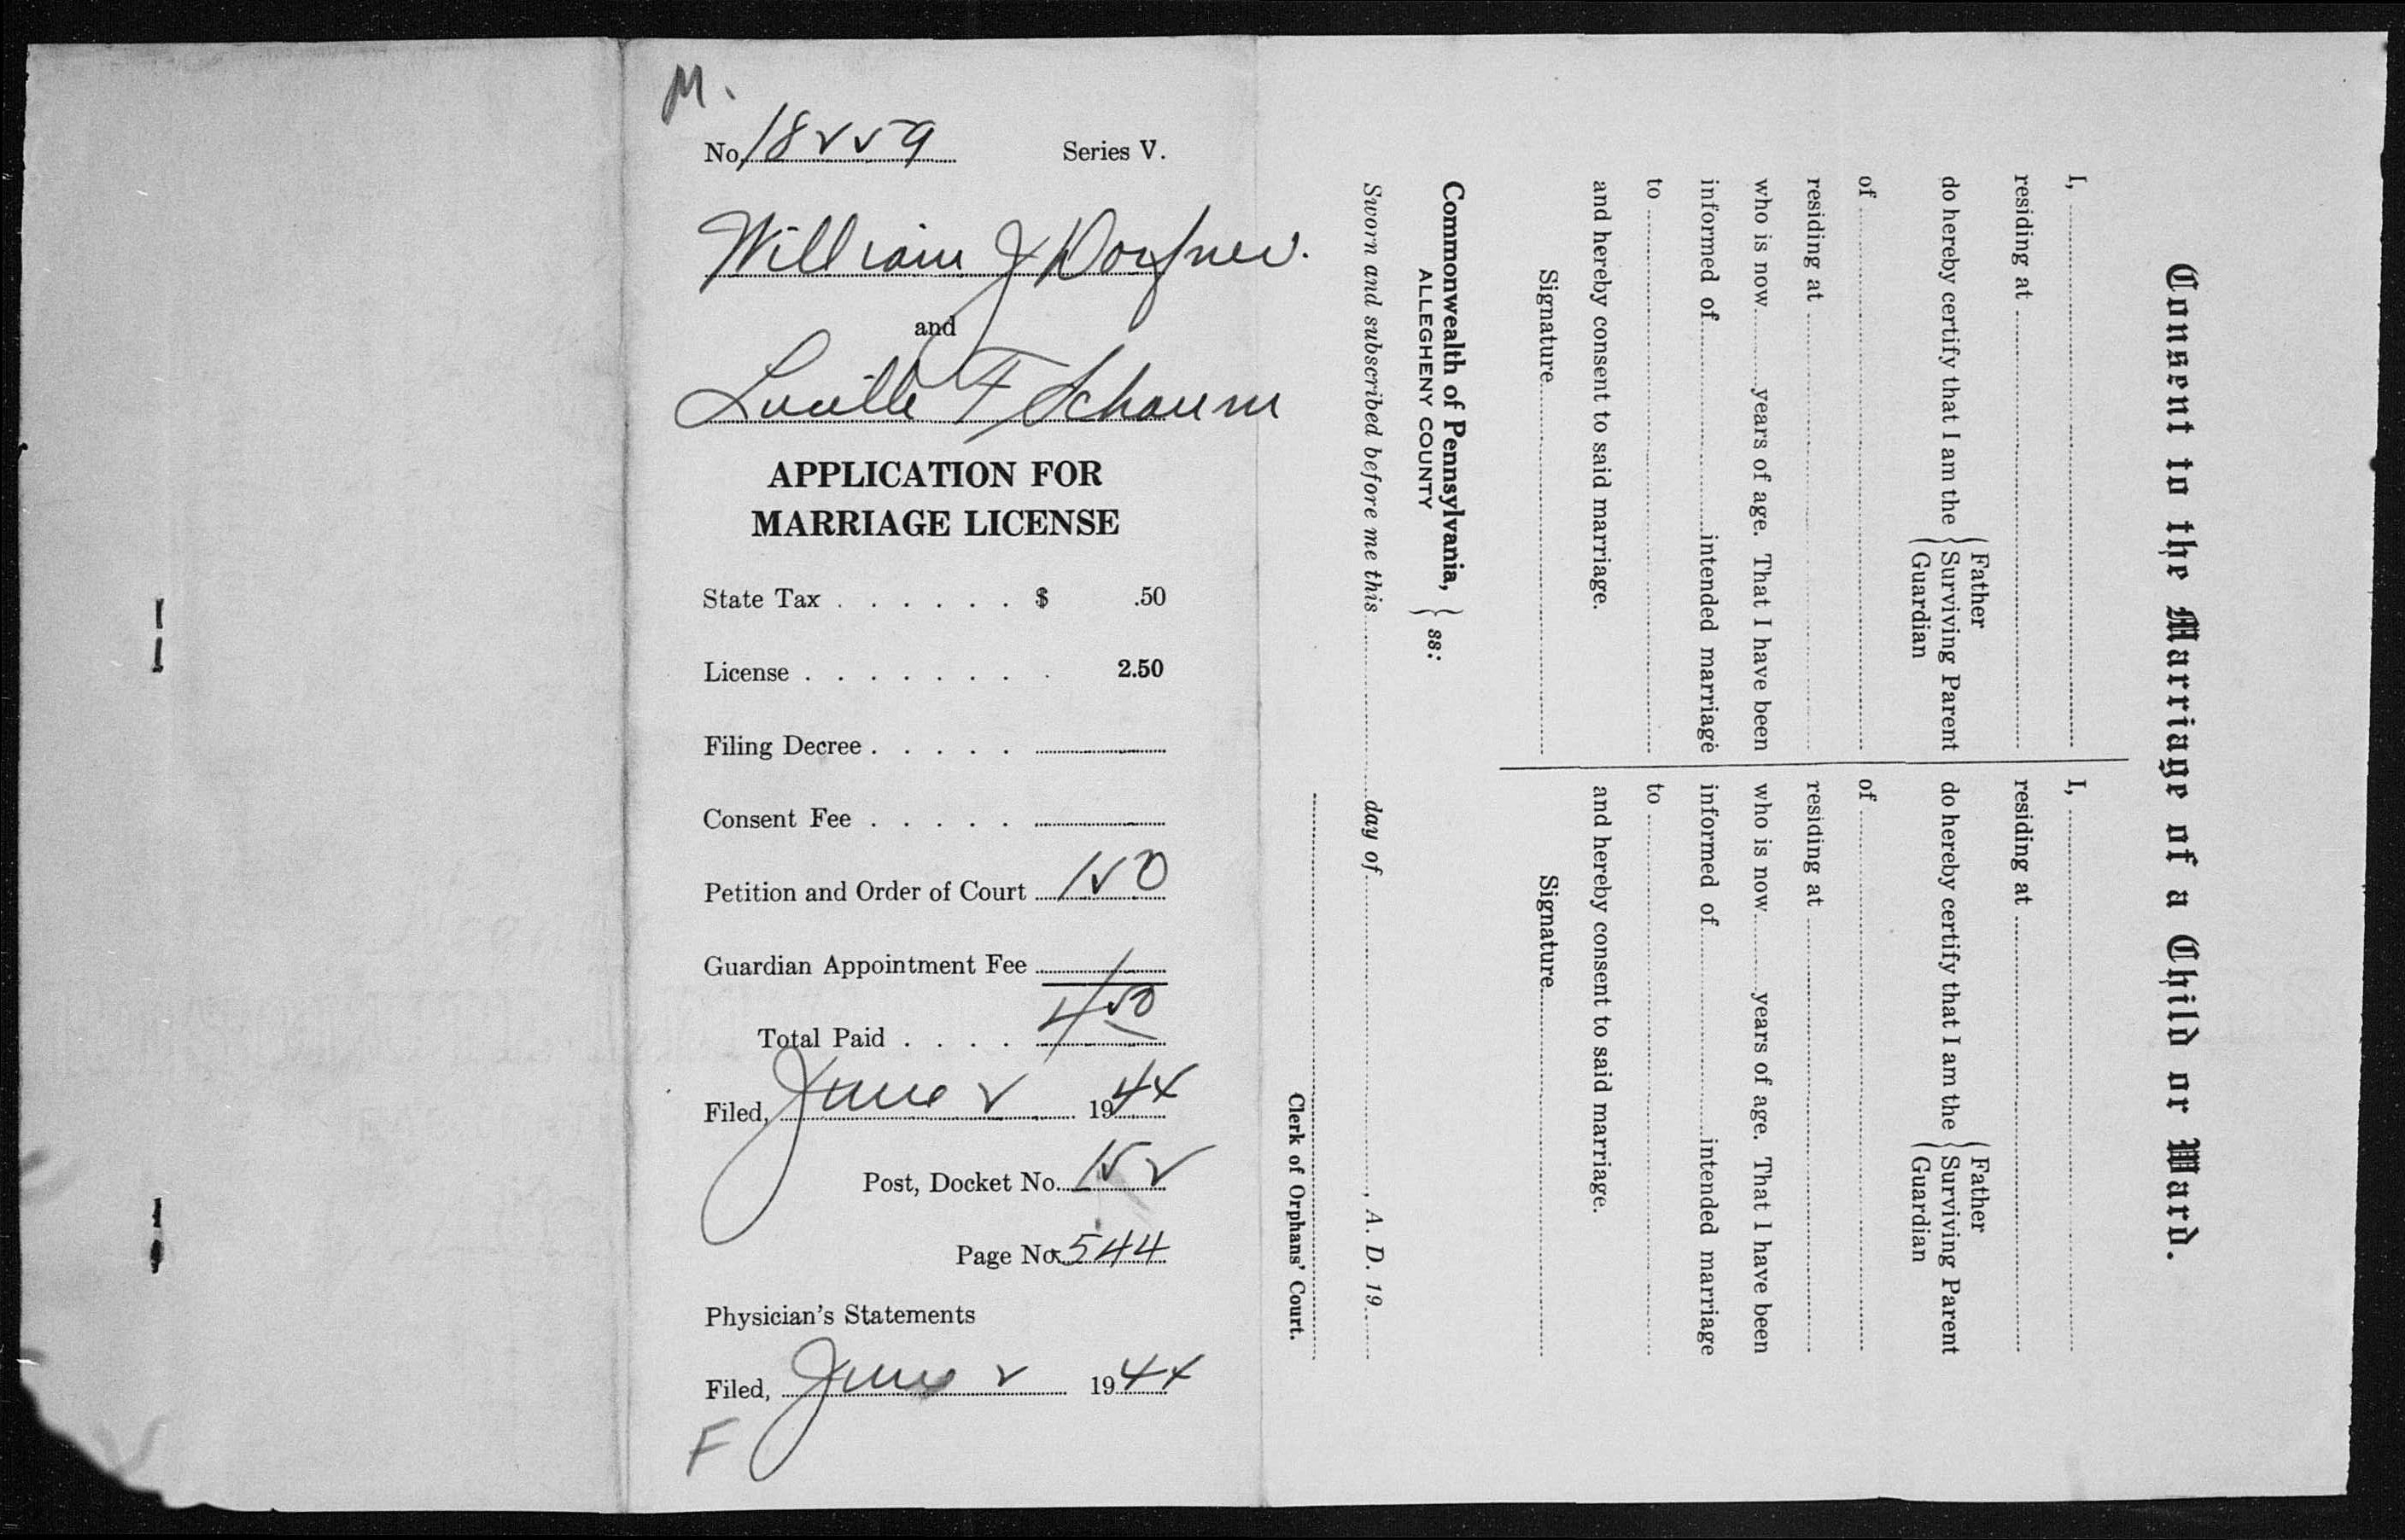 M.
No. 18259 Series V.
William J
and
Lucille F Schaum
APPLICATION FOR
MARRIAGE LICENSE
State Tax . . . . . . $ .50
License . . . . . . . . 2.50
Filing Decree . . . . .
Consent Fee . . . . .
Petition and Order of Court 150
Guardian Appointment Fee
Total Paid . . . . 450
Filed, June 2 1944
Post, Docket No. 152
Page No. 544
Physician's Statements
Filed, June 2 1944
F
Consent to the Marriage of a Child or Ward.
I,
residing at
do hereby certify that I am the { Father
Surviving Parent
Guardian
of
residing at
who is now years of age. That I have been
informed of intended marriage
to
and hereby consent to said marriage.
Signature
I,
residing at
do hereby certify that I am the { Father
Surviving Parent
Guardian
of
residing at
who is now years of age. That I have been
informed of intended marriage
to
and hereby consent to said marriage.
Signature
Commonwealth of Pennsylvania, } ss:
ALLEGHENY COUNTY
Sworn and subscribed before me this day of , A. D. 19
Clerk of Orphans' Court.